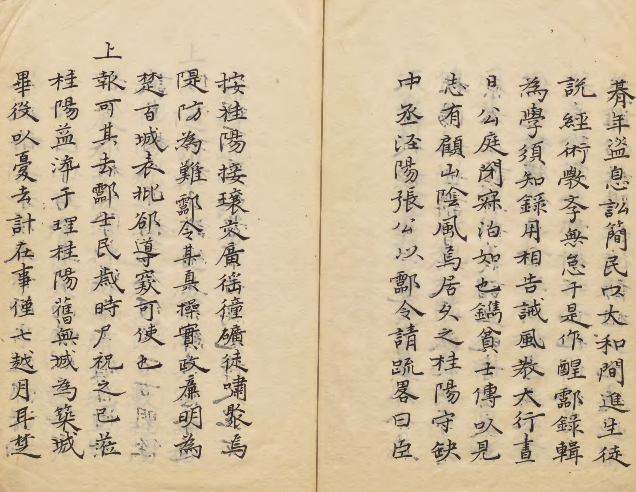 朞年盜息訟簡民以大和間進生徒
說經術斆孝無怠于是作醒酃錄輯
為學須知錄用相告誡風教大行晝
日公庭閉寂泊如也鐫貧士傳以見
志有顧山陰風焉居久之桂陽守缺
中丞涇陽張公以酃令請疏畧曰臣
按桂陽接壤交廣徭獞礦徒嘯聚焉
隄防為難酃令某真操實政廉明為
楚百城表批郤導窾可使也
上報可其去酃士民歲時尸祝之已蒞
桂陽益滓于理桂陽舊無城為築城
畢役以憂去計在事僅七越月耳楚